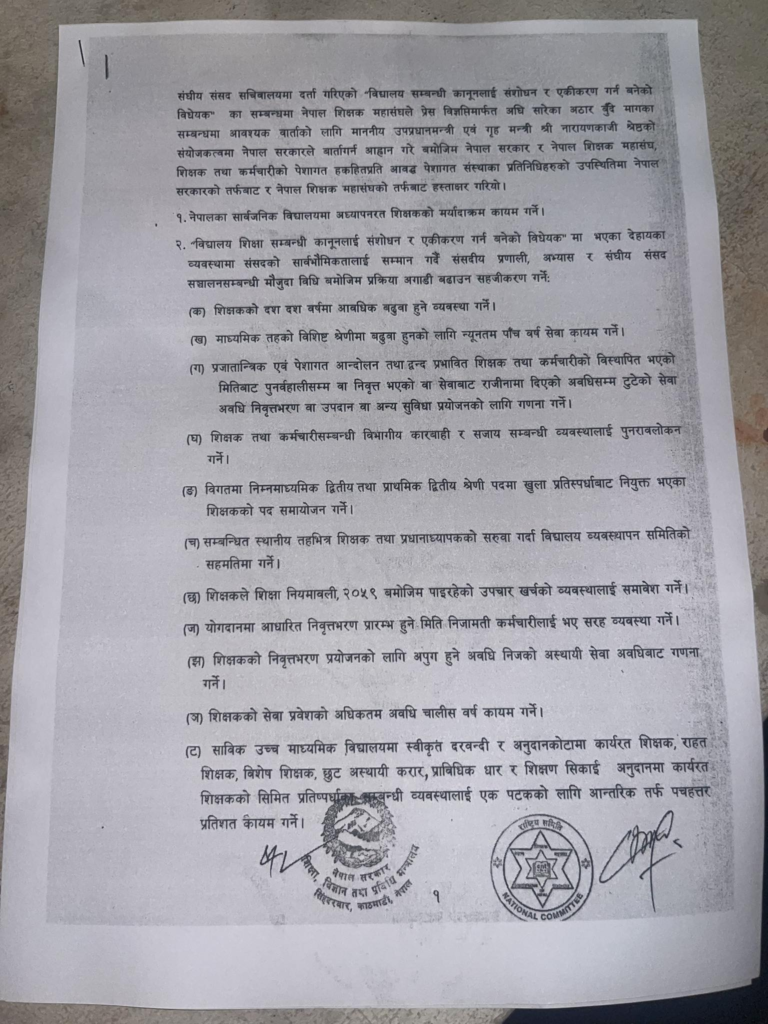 संघीय संसद सचिबालयमा दर्ता गरिएको "विद्यालय सम्बन्धी कानूनलाई संशोधन र एकीकरण गर्न बनेको
विधेयक" का सम्बन्धमा नेपाल शिक्षक महासंघले प्रेस विज्ञप्तिमार्फत अघि सारेका अठार बुँदे मागका
सम्बन्धमा आवश्यक वार्ताको लागि माननीय उपप्रधानमन्त्री एवं गृह मन्त्री श्री नारायणकाजी श्रेष्ठको
संयोजकत्वमा नेपाल सरकारले बार्तागर्न आह्वान गरे बमोजिम नेपाल सरकार र नेपाल शिक्षक महासंघ,
शिक्षक तथा कर्मचारीको पेशागत हकहितप्रति आबद्ध पेशागत संस्थाका प्रतिनिधिहरुको उपस्थितिमा नेपाल
सरकारको तर्फबाट र नेपाल शिक्षक महासंघको तर्फबाट हस्ताक्षर गरियो।
१. नेपालका सार्बजनिक विद्यालयमा अध्यापनरत शिक्षकको मर्यादाक्रम कायम गर्ने।
२. "विद्यालय शिक्षा सम्बन्धी कानूनलाई संशोधन र एकीकरण गर्न बनेको विधेयक" मा भएका देहायका
व्यवस्थामा संसदको सार्बभौमिकतालाई सम्मान गर्दै संसदीय प्रणाली, अभ्यास र संघीय संसद
सञ्चालनसम्बन्धी मौजुदा विधि बमोजिम प्रक्रिया अगाडी बढाउन सहजीकरण गर्ने:
(क) शिक्षकको दश दश बर्षमा आबधिक बढुवा हुने व्यवस्था गर्ने।
(ख) माध्यमिक तहको विशिष्ट श्रेणीमा बढुवा हुनको लागि न्यूनतम पाँच बर्ष सेवा कायम गर्ने।
(ग) प्रजातान्त्रिक एवं पेशागत आन्दोलन तथा द्वन्द प्रभावित शिक्षक तथा कर्मचारीको विस्थापित भएको
मितिबाट पुनर्वहालीसम्म वा निवृत्त भएको वा सेवाबाट राजीनामा दिएको अबधिसम्म टुटेको सेवा
अवधि निवृत्तभरण वा उपदान वा अन्य सुविधा प्रयोजनको लागि गणना गर्ने।
(घ) शिक्षक तथा कर्मचारीसम्बन्धी बिभागीय कारबाही र सजाय सम्बन्धी व्यवस्थालाई पुनरावलोकन
गर्ने।
(ङ) विगतमा निम्नमाध्यमिक द्वितीय तथा प्राथमिक द्वितीय श्रेणी पदमा खुला प्रतिस्पर्धाबाट नियुक्त भएका
शिक्षकको पद समायोजन गर्ने।
(च) सम्बन्धित स्थानीय तहभित्र शिक्षक तथा प्रधानाध्यापकको सरुवा गर्दा विद्यालय व्यवस्थापन समितिको
सहमतिमा गर्ने।
(छ) शिक्षकले शिक्षा नियमावली, २०५९ बमोजिम पाइरहेको उपचार खर्चको व्यवस्थालाई समावेश गर्ने।
(ज) योगदानमा आधारित निवृत्तभरण प्रारम्भ हुने मिति निजामती कर्मचारीलाई भए सरह व्यवस्था गर्ने।
(झ) शिक्षकको निवृत्तभरण प्रयोजनको लागि अपुग हुने अवधि निजको अस्थायी सेवा अवधिबाट गणना
गर्ने।
(ञ) शिक्षकको सेवा प्रवेशको अधिकतम अवधि चालीस वर्ष कायम गर्ने।
(ट) साबिक उच्च माध्यमिक विद्यालयमा स्वीकृत दरवन्दी र अनुदानकोटामा कार्यरत शिक्षक, राहत
शिक्षक, बिशेष शिक्षक, छुट अस्थायी करार, प्राबिधिक धार र शिक्षण सिकाई अनुदानमा कार्यरत
शिक्षकको सिमित सम्बन्धी व्यवस्थालाई एक पटकको लागि आन्तरिक तर्फ पचहत्तर
प्रतिशत कायम गर्ने।
नेपाल सरकार
शिक्षा, विज्ञान तथा प्रविधि मन्त्रालय
सिंहदरबार, काठमाडौं, नेपाल
१
राष्ट्रिय समिति
NATIONAL COMMITTEE